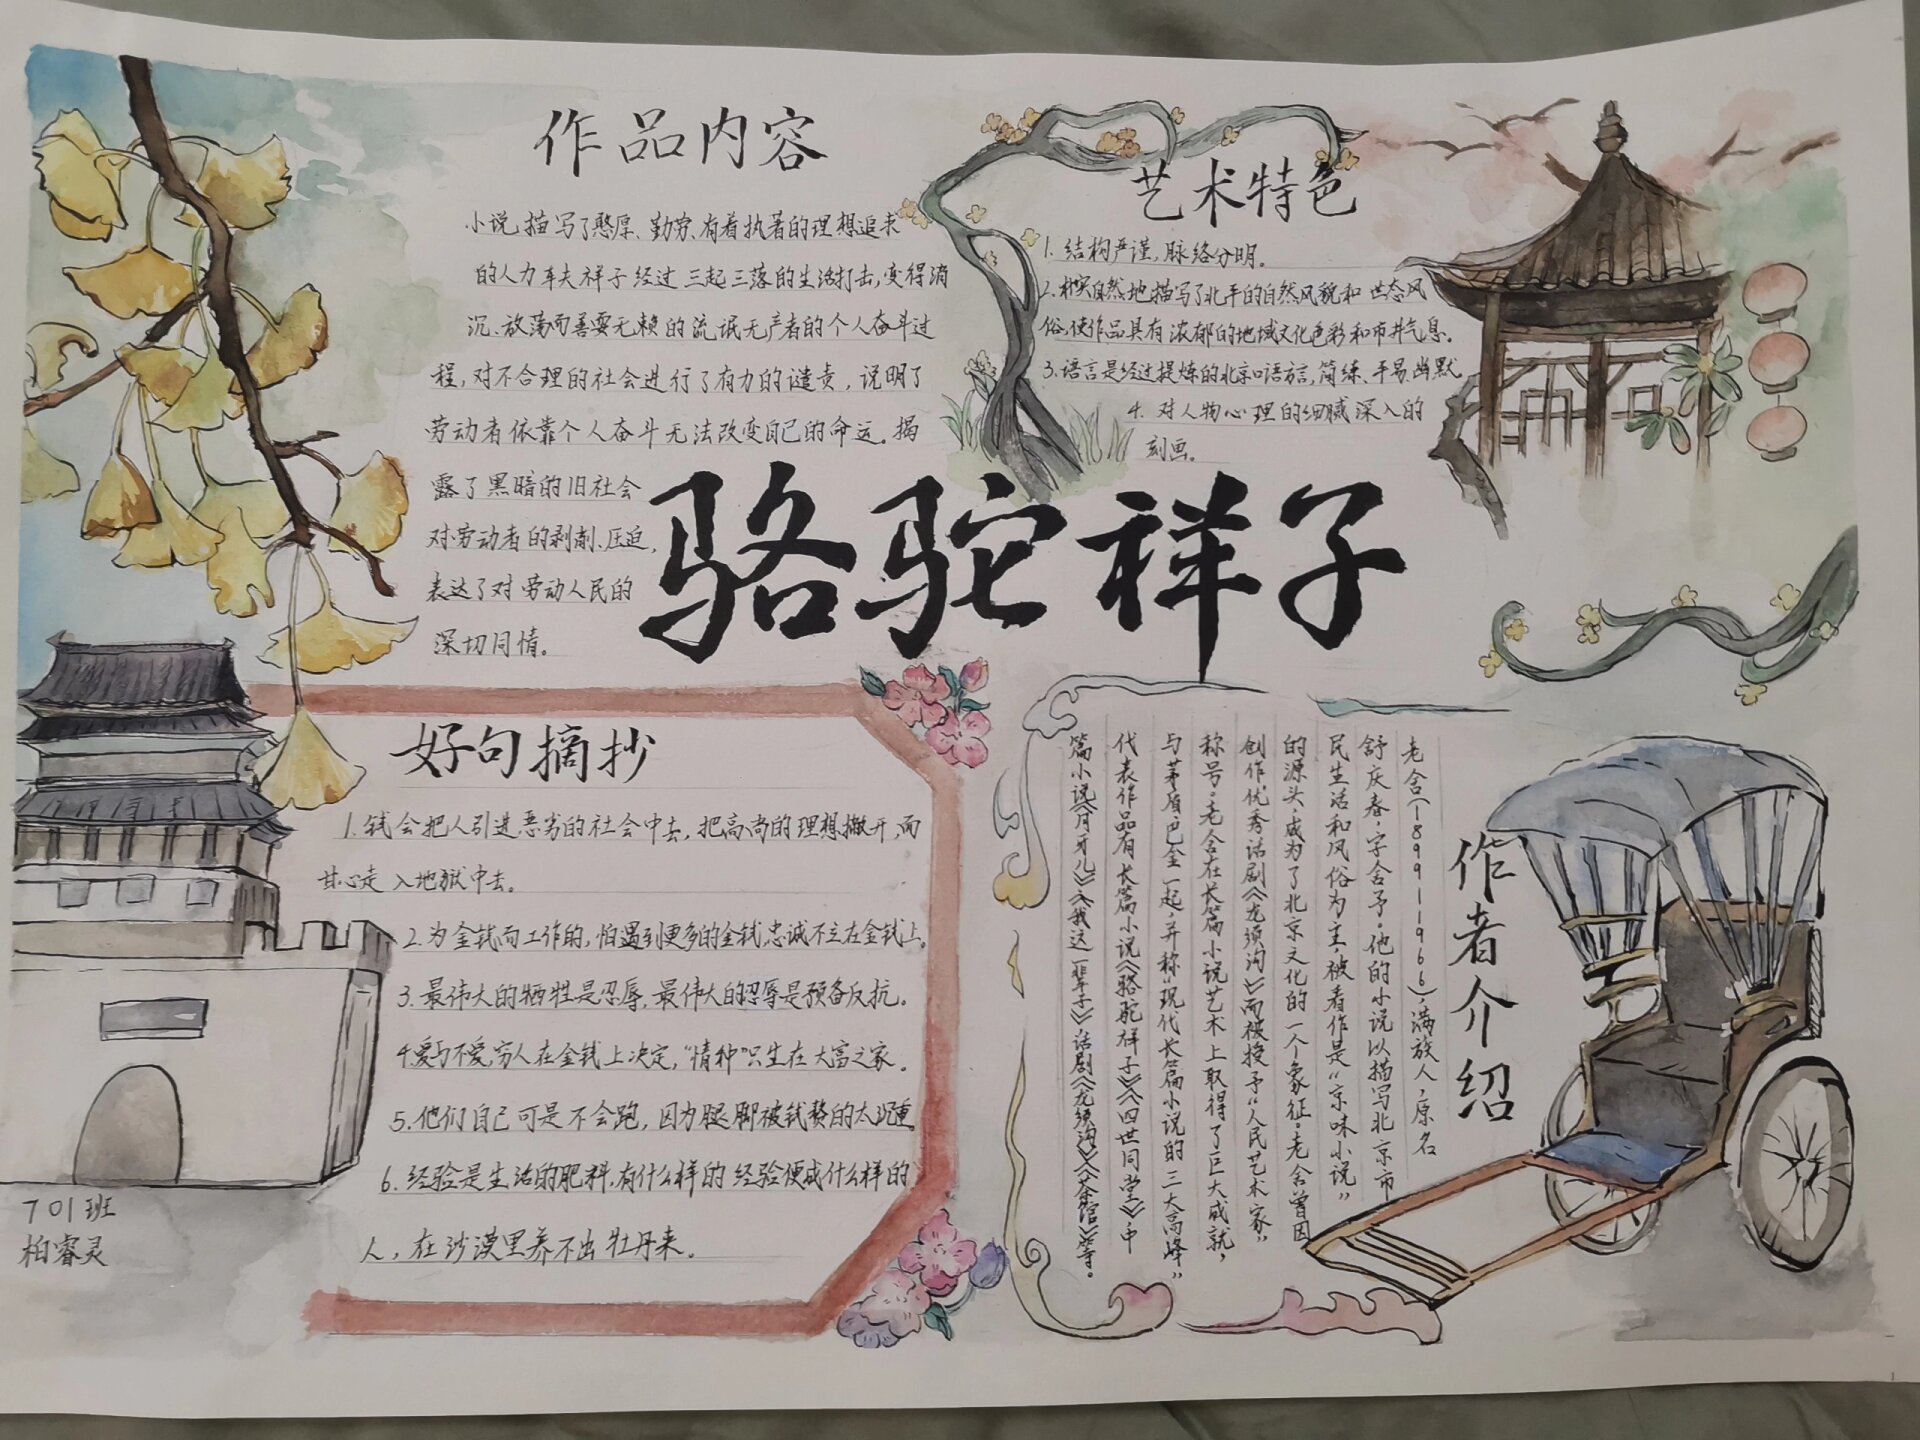 作品内容
小说,描写了憨厚、勤劳、有着执著的理想追求
的人力车夫祥子经过三起三落的生活打击,变得消
沉、放荡而善耍无赖的流氓无产者的个人奋斗过
程,对不合理的社会进行了有力的谴责,说明了
劳动者依靠个人奋斗无法改变自己的命运。揭
露了黑暗的旧社会
对劳动者的剥削、压迫,
表达了对劳动人民的
深切同情。
艺术特色
1.结构严谨,脉络分明。
2.朴实自然地描写了北平的自然风貌和世态风
俗,使作品具有浓郁的地域文化色彩和市井气息。
3.语言是经过提炼的北京口语方言,简练、平易、幽默
4.对人物心理的细腻深入的
刻画。
骆驼祥子
好句摘抄
1.钱会把人引进恶劣的社会中去,把高尚的理想撇开,而
甘心走入地狱中去。
2.为金钱而工作的,怕遇到更多的金钱,忠诚不立在金钱上。
3.最伟大的牺牲是忍辱,最伟大的忍辱是预备反抗。
4.爱与不爱,穷人在金钱上决定,“情种”只生在大富之家。
5.他们自己可是不会跑,因为腿脚被钱赘的太沉重。
6.经验是生活的肥料,有什么样的经验便成什么样的
人,在沙漠里养不出牡丹来。
作者介绍
老舍(1899—1966),满族人,原名
舒庆春,字舍予。他的小说以描写北京市
民生活和风俗为主,被看作是“京味小说”
的源头,成为了北京文化的一个象征。老舍曾因
创作优秀话剧《龙须沟》而被授予“人民艺术家”
称号。老舍在长篇小说艺术上取得了巨大成就,
与茅盾、巴金一起,并称“现代长篇小说的三大高峰”
代表作品有长篇小说《骆驼祥子》《四世同堂》中
篇小说《月牙儿》《我这一辈子》话剧《龙须沟》《茶馆》等。
701班
柏睿灵